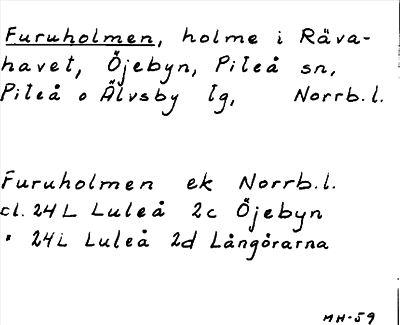 Furuholmen, holme i Räva-
havet, Öjebyn, Piteå sn,
Piteå o Älvsby tg, Norrb.l.
Furuholmen ek Norrb.l.
cl. 24L Luleå 2c Öjebyn
" 24L Luleå 2d Långörarna
MH-59